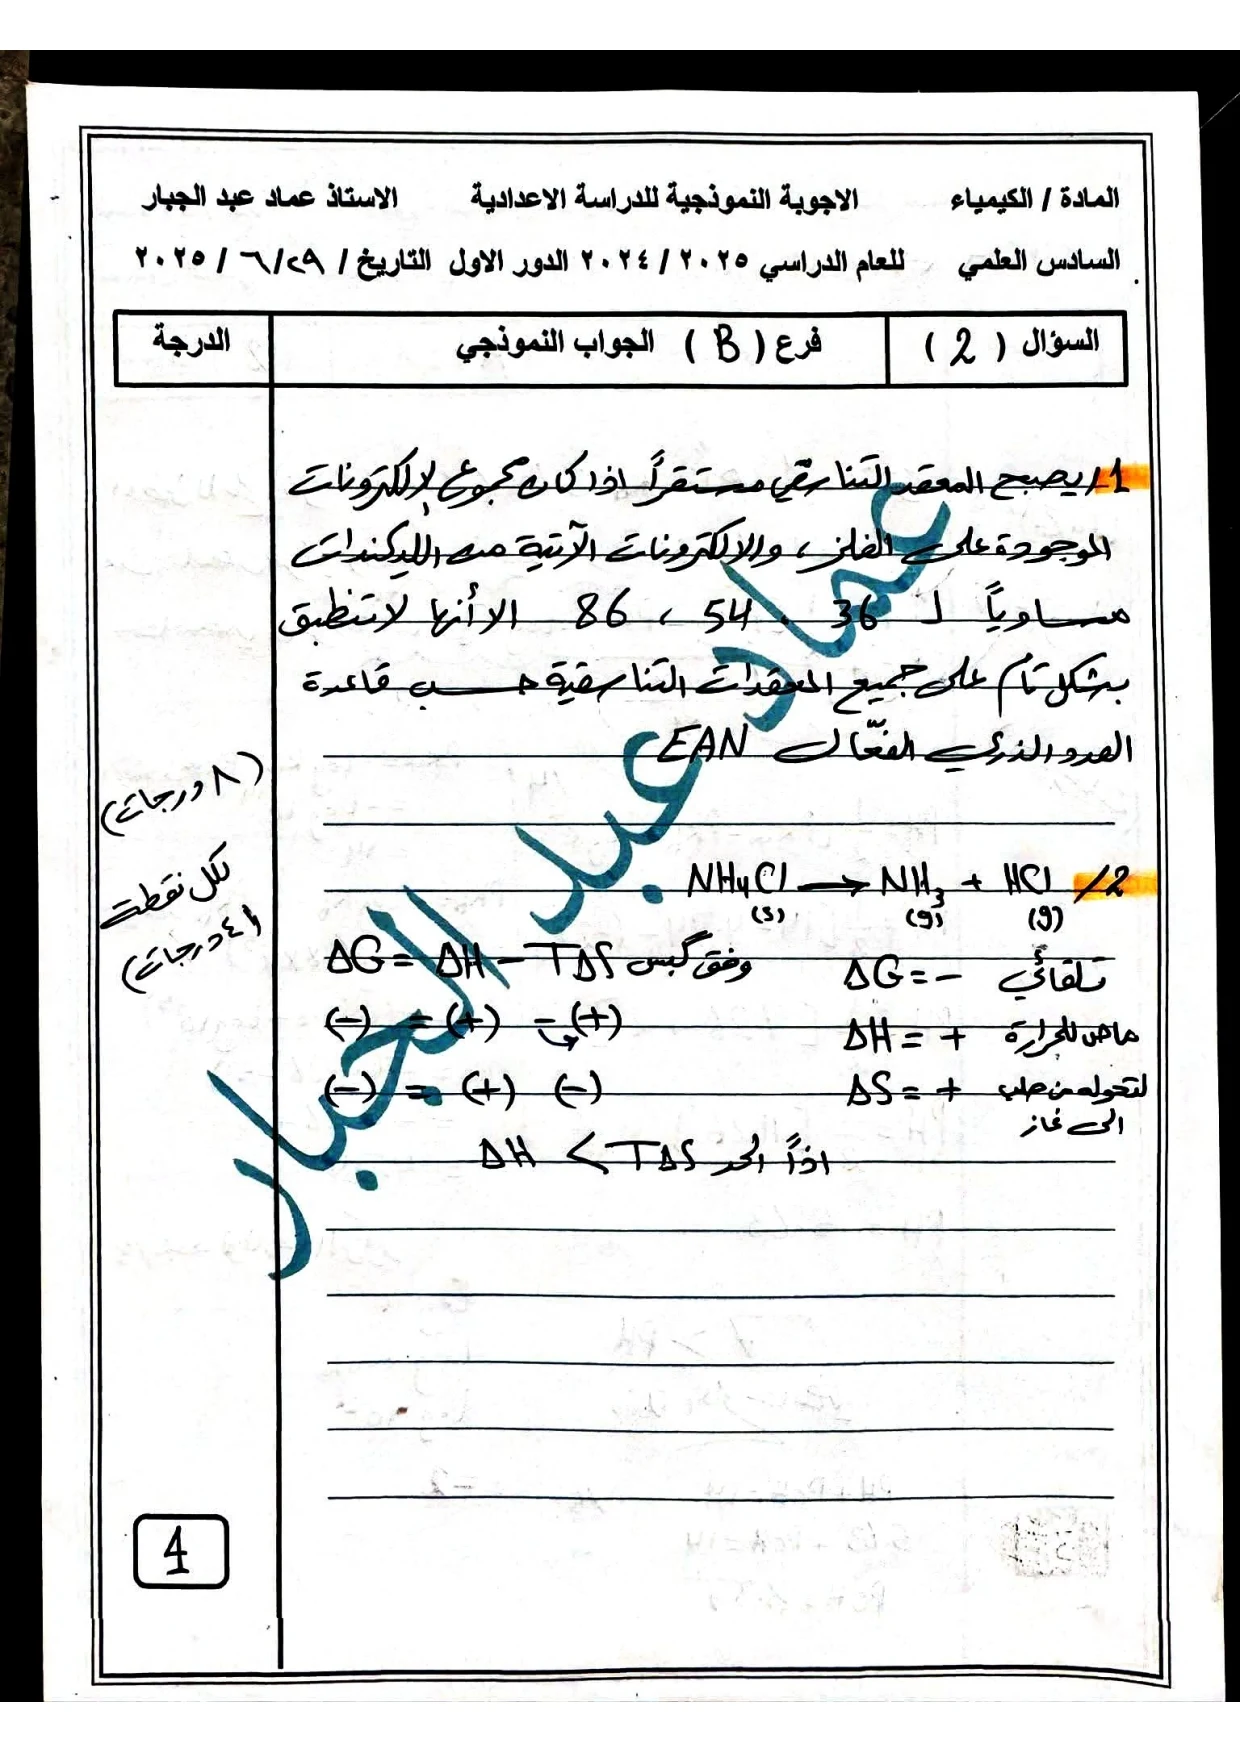 المادة / الكيمياء الاجوبة النموذجية للدراسة الاعدادية الاستاذ عماد عبد الجبار
السادس العلمي للعام الدراسي ٢٠٢٥ / ٢٠٢٤ الدور الاول التاريخ / ٢٩ / ٦ / ٢٠٢٥
السؤال ( 2 ) فرع ( B ) الجواب النموذجي الدرجة
1/ يصبح المعقد التناسقي مستقراً اذا كان مجموع الالكترونات
الموجودة على الفلز ، والالكترونات الآتية من الليكندات
مساوياً لـ 36 ، 54 ، 86 الا أنها لا تنطبق
بشكل تام على جميع المعقدات التناسقية حسب قاعدة
العدد الذري الفعّال EAN
(٨ درجات)
لكل نقطة
(٤ درجات)
2/ NH4Cl(s) → NH3(g) + HCl(g)
تلقائي ΔG = − وفق گبس ΔG = ΔH − TΔS
ماص للحرارة ΔH = + (−) = (+) − (+)
لتحوله من صلب ΔS = + (−) = (+) (−)
الى غاز
اذاً الحد ΔH < TΔS
عماد عبد الجبار
4